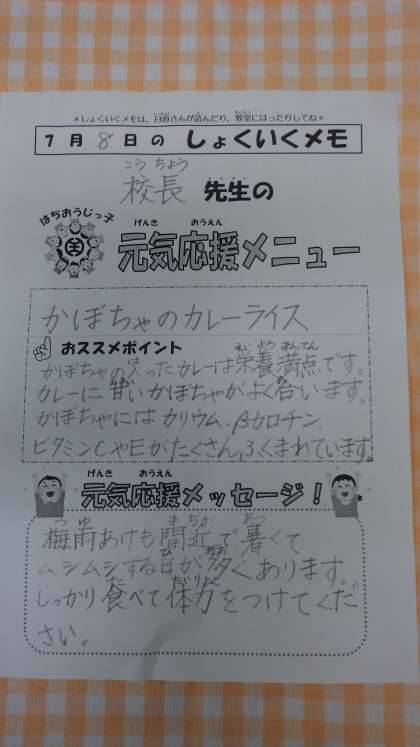 ＊しょくいくメモは、日直さんが読んだり、教室にはったりしてね＊
7月8日のしょくいくメモ
こうちょう
校長 先生の
はちおうじっ子
げんき おうえん
元気応援メニュー
かぼちゃのカレーライス
おススメポイント
えいようまんてん
かぼちゃの入ったカレーは栄養満点です。
カレーに甘いかぼちゃがよく合います。
かぼちゃにはカリウム、βカロチン、
ビタミンCやEがたくさんふくまれています。
げんき おうえん
元気応援メッセージ！
つゆ まぢか あつ
梅雨あけも間近で暑くて
ムシムシする日が多くあります。
しっかり食べて体力をつけてくだ
さい。